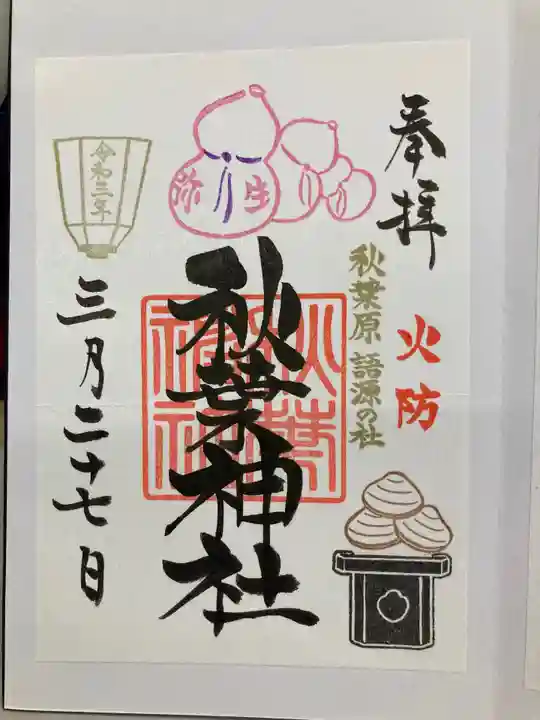 奉拝
火防
秋葉原 語源の社
弥生
秋葉神社
秋葉
神社
令和三年
三月二十七日